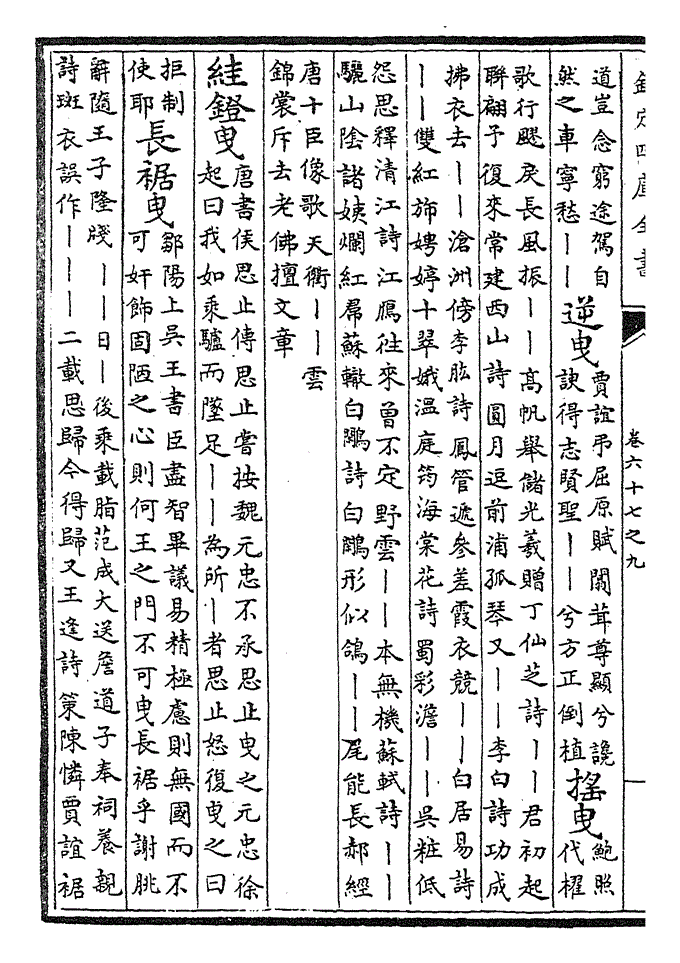 欽定四庫全書
卷六十七之九
道豈念窮途駕自
然之車寧愁丨丨
逆曳
賈誼弔屈原賦闒茸尊顯兮讒
諛得志賢聖丨丨兮方正倒植
搖曳
鮑照
代櫂
歌行飃戾長風振丨丨高帆舉儲光羲贈丁仙芝詩丨丨君初起
聯翩予復來常建西山詩圓月逗前浦孤琴又丨丨李白詩功成
拂衣去丨丨滄洲傍李肱詩鳳管遞參差霞衣競丨丨白居易詩
丨丨雙紅旆娉婷十翠娥溫庭筠海棠花詩蜀彩澹丨丨吳粧低
怨思釋清江詩江鴈往來曾不定野雲丨丨本無機蘇軾詩丨丨
驪山隂諸姨爛紅帬蘇轍白鷳詩白鷳形似鴿丨丨尾能長郝經
唐十臣像歌天衢丨丨雲
錦裳斥去老佛擅文章
絓鐙曳
唐書侯思止傳思止嘗按魏元忠不承思止曳之元忠徐
起曰我如乘驢而墜足丨丨為所丨者思止怒復曳之曰
拒制
使耶
長裾曳
鄒陽上吳王書臣盡智畢議易精極慮則無國而不
可奸飾固陋之心則何王之門不可曳長裾乎謝朓
辭隨王子隆牋丨丨日丨後乘載脂范成大送詹道子奉祠養親
詩斑衣誤作丨丨丨二載思歸今得歸又王逢詩策陳憐賈誼裾